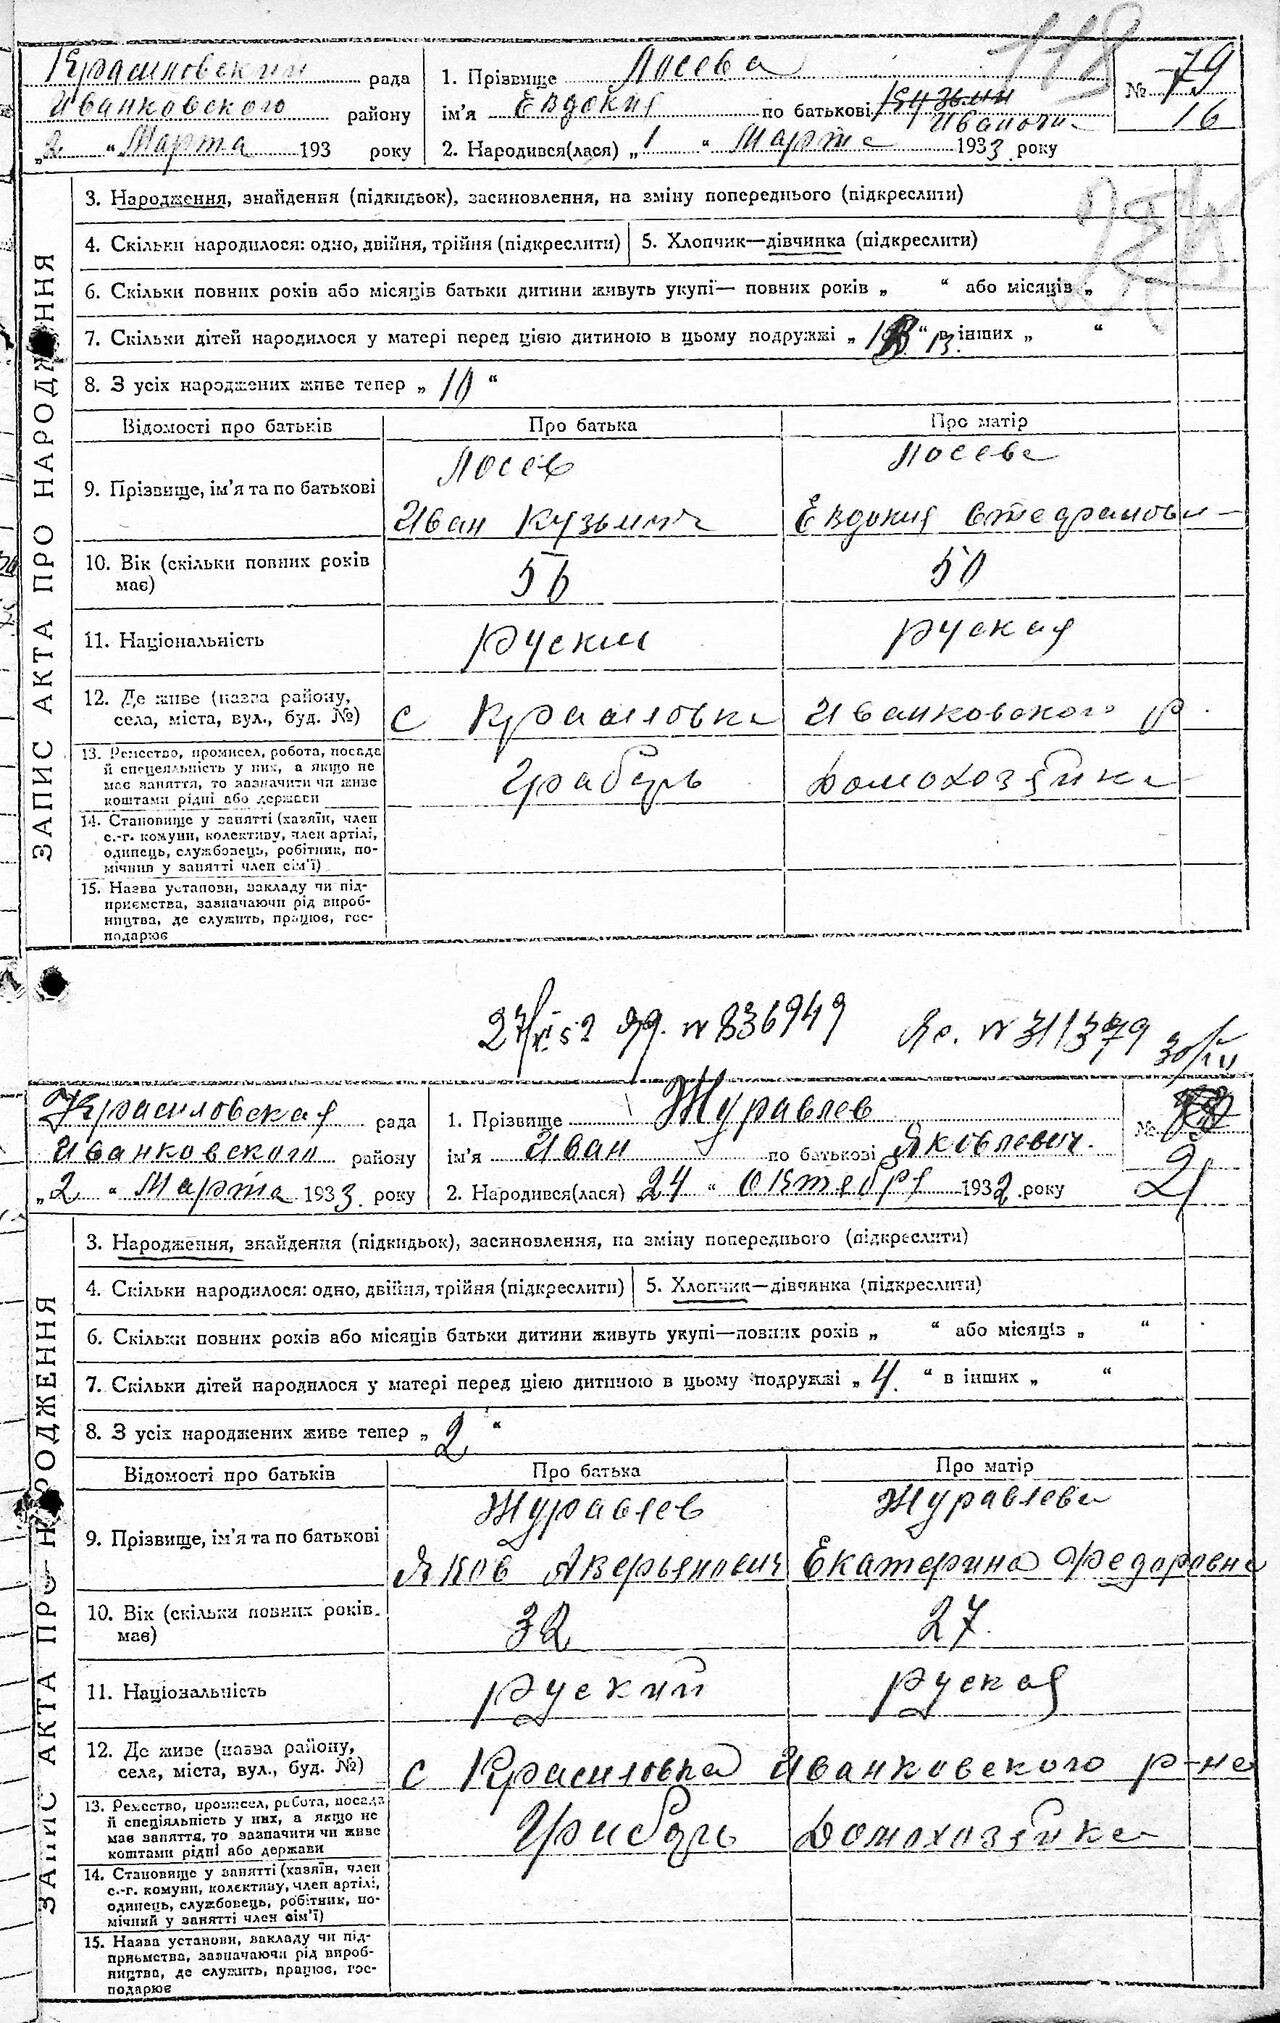 118
Красиловский рада
Иванковского району
„2 “ Марта 193 року
1. Прізвище Лосева
ім'я Евдокия по батькові Кузьмин
Иванов
2. Народився(лася) „1 “ Марта 1933 року
№ 79
16
ЗАПИС АКТА ПРО НАРОДЖЕННЯ
3. Народження, знайдення (підкидьок), засиновлення, на зміну попереднього (підкреслити)
4. Скільки народилося: одно, двійня, трійня (підкреслити)
5. Хлопчик—дівчинка (підкреслити)
6. Скільки повних років або місяців батьки дитини живуть укупі— повних років „ “ або місяців „
7. Скільки дітей народилося у матері перед цією дитиною в цьому подружжі „ 13 “ в інших „ “
8. З усіх народжених живе тепер „ 10 “
Відомості про батьків Про батька Про матір
9. Прізвище, ім'я та по батькові
Лосев
Иван Кузьмич
Лосева
Евдокия
10. Вік (скільки повних років
має)
56
50
11. Національність
руский
руская
12. Де живе (назва району,
села, міста, вул., буд. №)
с Красиловка Иванковского р
13. Ремество, промисел, робота, посада
й спецеяльність у них, а якщо не
має заняття, то зазначити чи живе
коштами рідні або держави
Грабарь
Домохозяйка
14. Становище у занятті (хазяїн, член
с.-г. комуни, колективу, член артілі,
одинець, службовець, робітник, по-
мічник у занятті член сім'ї)
15. Назва установи, закладу чи під-
приємства, зазначаючи рід вироб-
ництва, де служить, працює, гос-
подарює
№ 836949 № 311379
Красиловская рада
Иванковского району
„2 “ Марта 1933 року
1. Прізвище Журавлев
ім'я Иван по батькові Яковлевич
2. Народився(лася) 24 “ Октебря 1932 року
№
21
ЗАПИС АКТА ПРО НАРОДЖЕННЯ
3. Народження, знайдення (підкидьок), засиновлення, на зміну попереднього (підкреслити)
4. Скільки народилося: одно, двійня, трійня (підкреслити)
5. Хлопчик—дівчинка (підкреслити)
6. Скільки повних років або місяців батьки дитини живуть укупі—повних років „ “ або місяців „ “
7. Скільки дітей народилося у матері перед цією дитиною в цьому подружжі „ 4. “ в інших „ “
8. З усіх народжених живе тепер „ 2 “
Відомості про батьків Про батька Про матір
9. Прізвище, ім'я та по батькові
Журавлев
Яков Аверьянович
Журавлева
Екатерина Федоровна
10. Вік (скільки повних років
має)
32
27
11. Національність
руский
руская
12. Де живе (назва району,
села, міста, вул., буд. №)
с Красиловка Иванковского р-на
13. Ремество, промисел, робота, посада
й спеціяльність у них, а якщо не
має заняття, то зазначити чи живе
коштами рідні або держави
Грабарь
Домохозяйка
14. Становище у занятті (хазяїн, член
с.-г. комуни, колективу, член артілі,
одинець, службовець, робітник, по-
мічний у занятті член сім'ї)
15. Назва установи, закладу чи під-
приємства, зазначаючи рід вироб-
ництва, де служить, працює, гос-
подарює